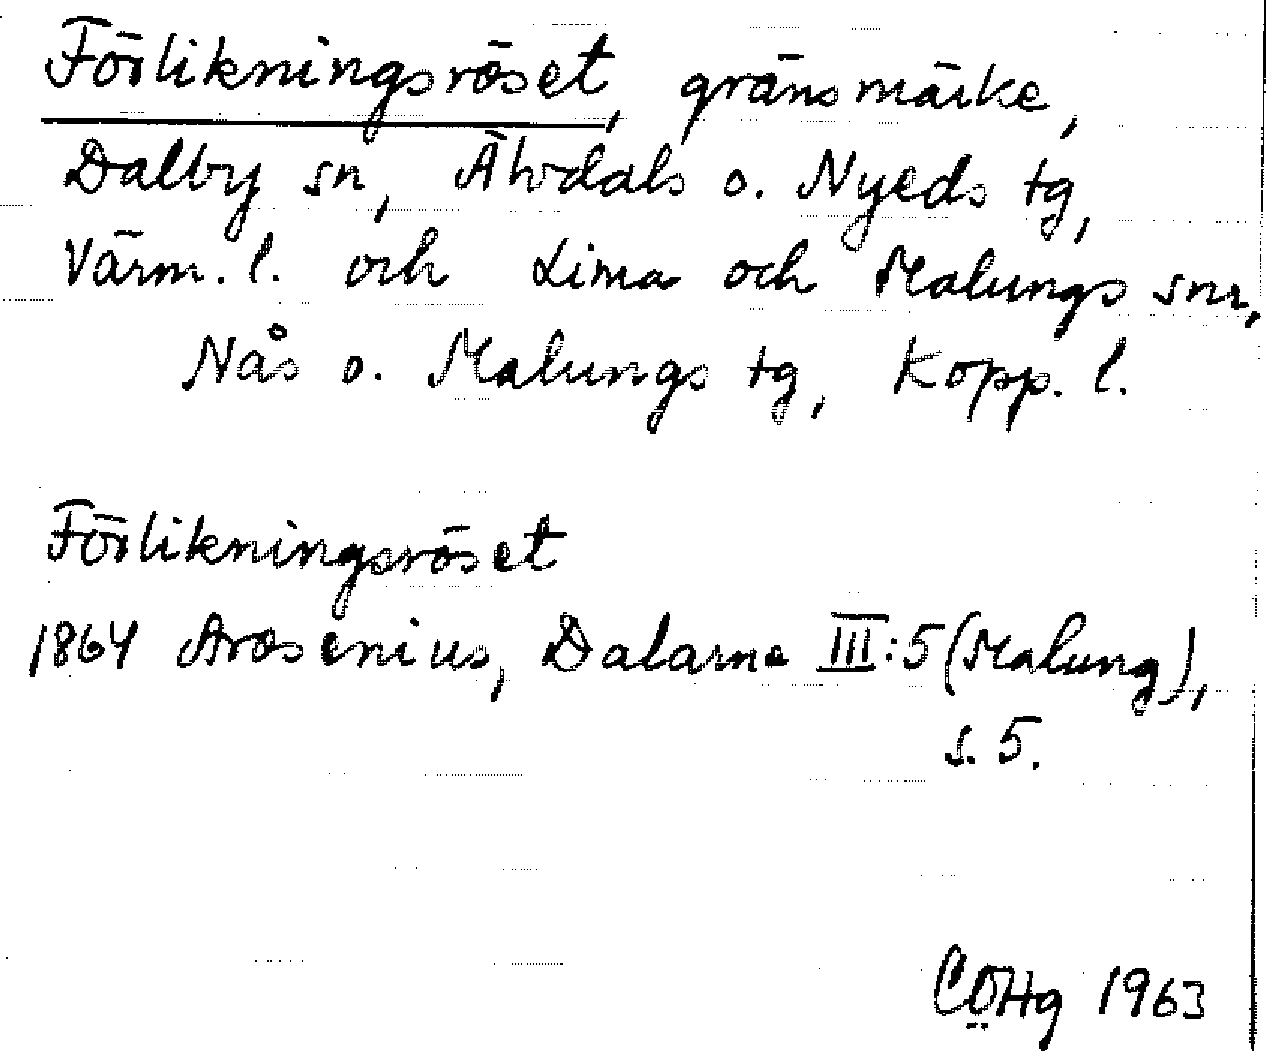 Förlikningsröset, gränsmärke,
Dalby sn, Älvdals o. Nyeds tg,
Värm. l. och Lima och Malungs snr,
Nås o. Malungs tg, Kopp. l.
Förlikningsröset
1864 Arosenius, Dalarne III:5 (Malung),
s. 5.
CÖHg 1963